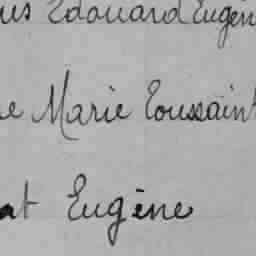 us Edouard Eugèn
e Marie Toussaint
at Eugène